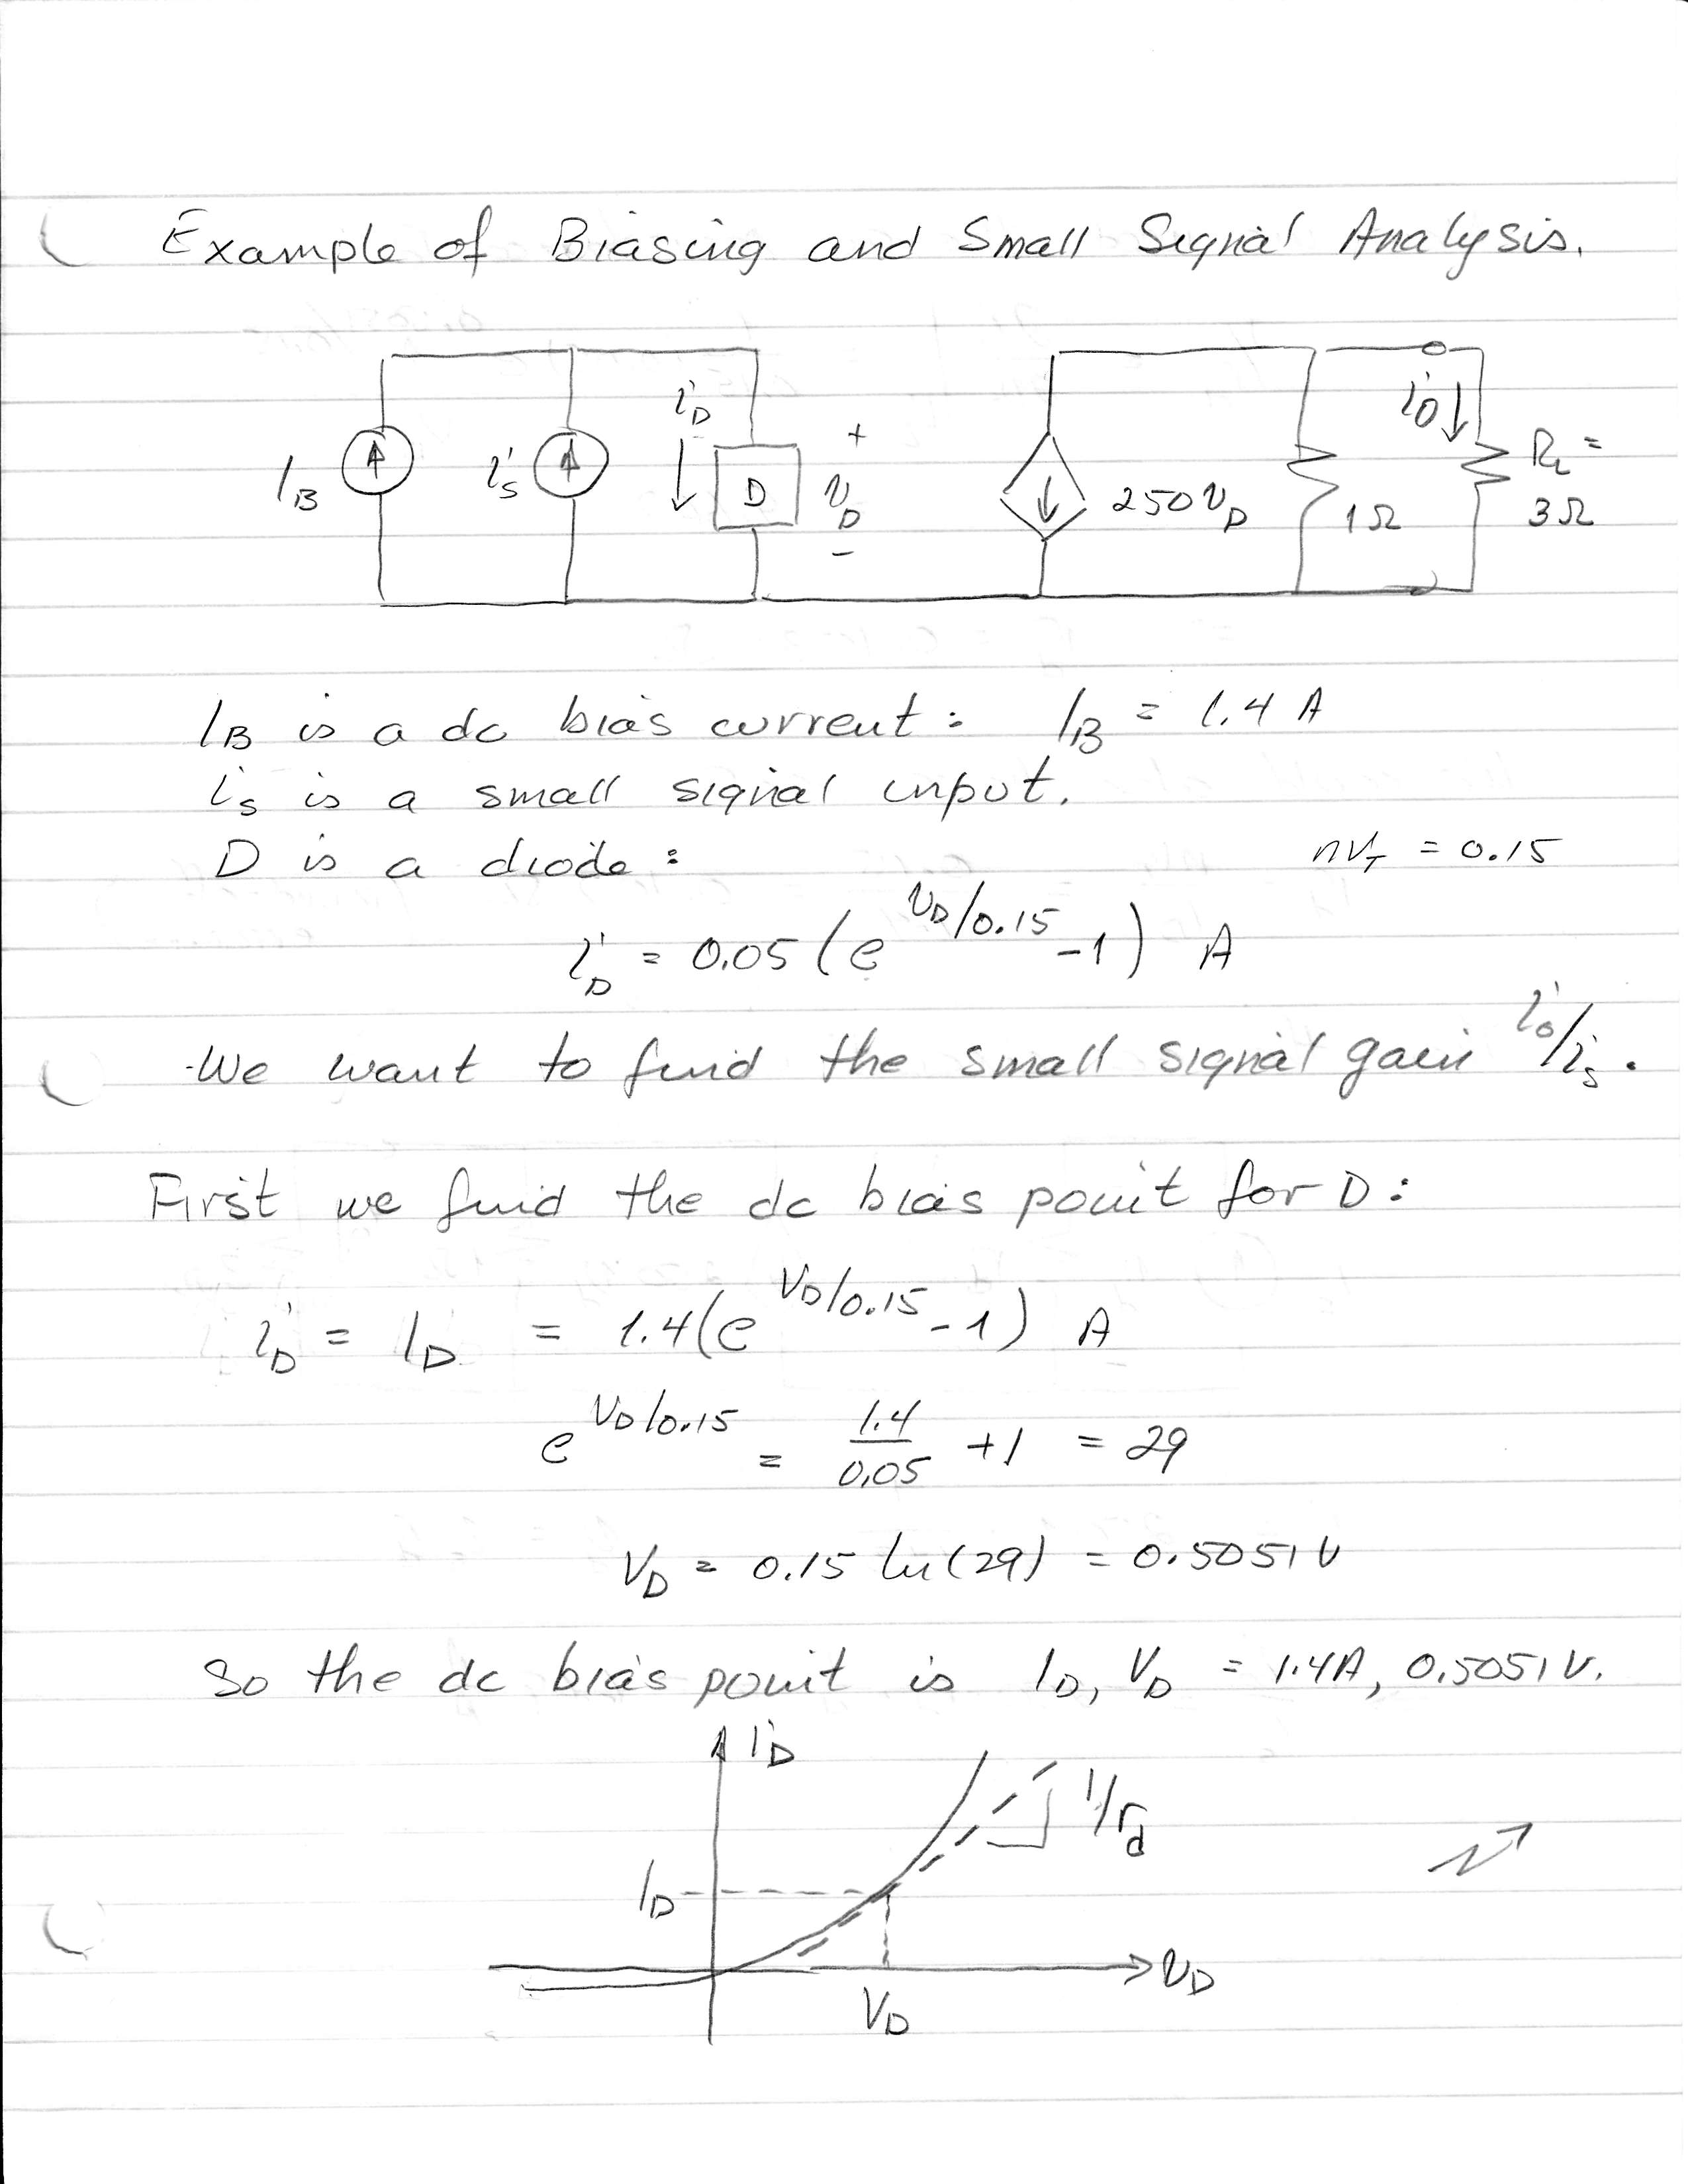 Example of Biasing and Small Signal Analysis.
I_B
i_S
i_D
D
+
v_D
−
250 v_D
1Ω
i_O
R_L =
3Ω
I_B is a dc bias current : I_B = 1.4 A
i_s is a small signal input.
D is a diode :
nV_T = 0.15
i_D = 0.05 (e^{v_D/0.15} - 1) A
We want to find the small signal gain i_o/i_s.
First we find the dc bias point for D :
i_D = I_D = 1.4 (e^{V_D/0.15} - 1) A
e^{V_D/0.15} = 1.4/0.05 + 1 = 29
V_D = 0.15 ln(29) = 0.5051 V
So the dc bias point is I_D, V_D = 1.4A, 0.5051 V.
i_D
1/r_d
I_D
v_D
V_D